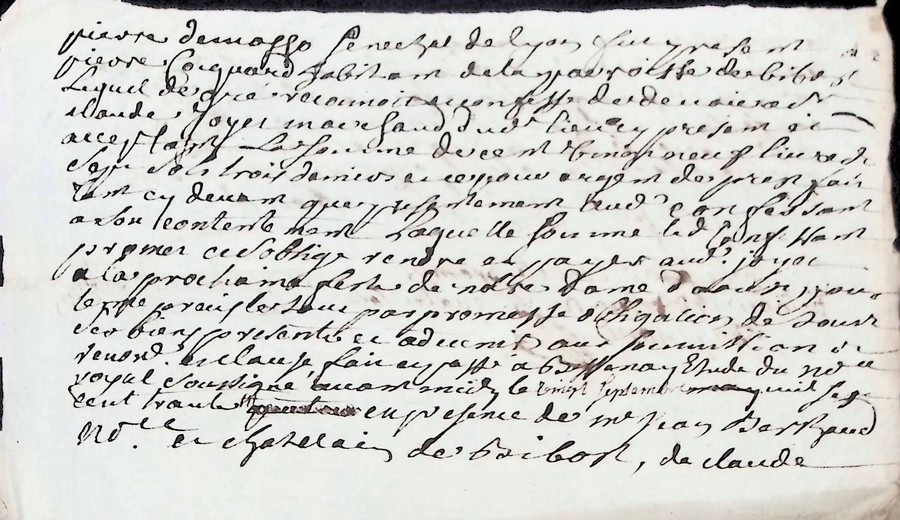 pierre demasso senechal de lyon fut present
pierre Cocquard habitant de la parroisse de bibost
Lequel de gré reconnoit et confesse debvoir a Sr
claude Joyet marchand dud. lieu cy present et
acceptant La somme de cent vingt neuf livres
sept sols trois deniers et ce pour argent de prest fait
tant cy devant que presentement aud. confessant
a son contentement Laquelle somme led. confessant
promet et s'oblige rendre et payer aud. joyet
a la prochaine feste de notre dame d'aoust
par promesse obligation de tous
ses biens presents et advenir aux soumissions
renon. et clause, fait et passé a Etude du no.re
royal soussigné avant midy le vingt septembre mil sept
cent trante en presence de me jean Berthaud
No.re et chatelain de bibost, de claude